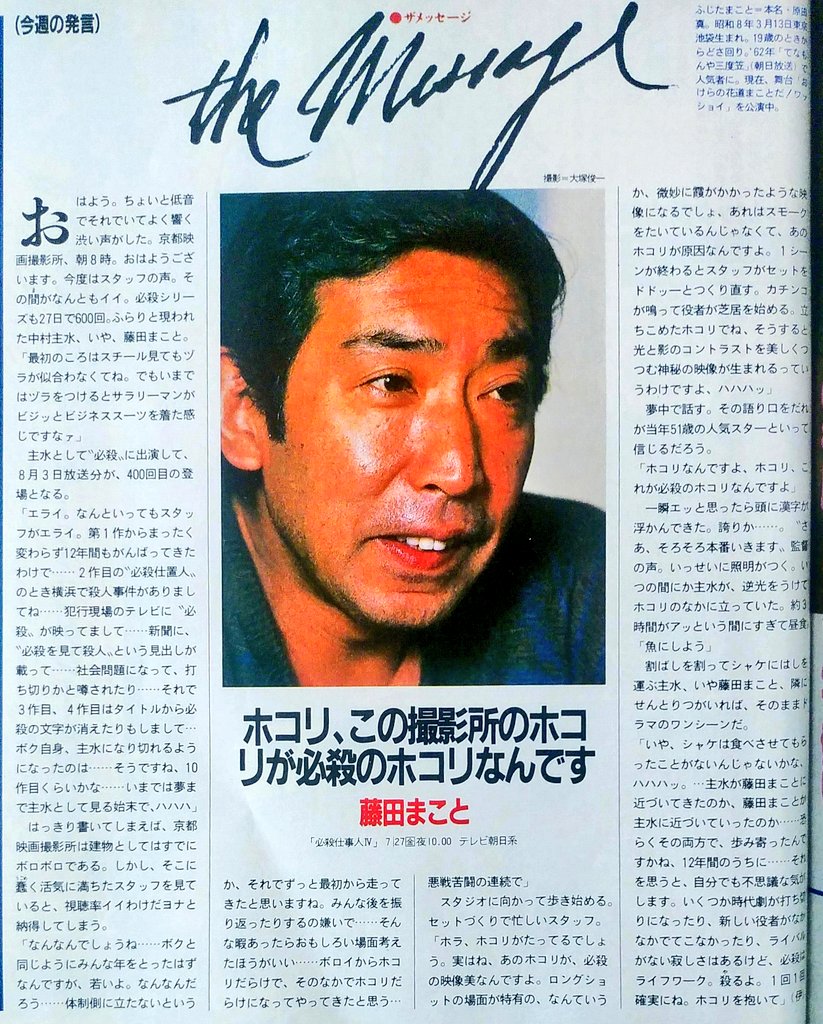 (今週の発言)
●ザメッセージ
the Message
ふじたまこと＝本名・原田
真。昭和8年3月13日東京
池袋生まれ。19歳のときか
らどさ回り。'62年「てなも
んや三度笠」(朝日放送)で
人気者に。現在、舞台「お
けらの花道まことだ！ワッ
ショイ」を公演中。
撮影＝大塚俊一
おはよう。ちょいと低音
でそれでいてよく響く
渋い声がした。京都映
画撮影所、朝8時。おはようござ
います。今度はスタッフの声。そ
の間がなんともイイ。必殺シリー
ズも27日で600回。ふらりと現われ
た中村主水、いや、藤田まこと。
「最初のころはスチール見てもヅ
ラが似合わなくてね。でもいまで
はヅラをつけるとサラリーマンが
ビジッとビジネススーツを着た感
じですなァ」
主水として〝必殺〟に出演して、
8月3日放送分が、400回目の登
場となる。
「エライ。なんといってもスタッ
フがエライ。第1作からまったく
変わらず12年間もがんばってきた
わけで……2作目の〝必殺仕置人〟
のとき横浜で殺人事件がありまし
てね……犯行現場のテレビに〝必
殺〟が映ってまして……新聞に、
〝必殺を見て殺人〟という見出しが
載って……社会問題になって、打
ち切りかと噂されたり……それで
3作目、4作目はタイトルから必
殺の文字が消えたりもしまして…
ボク自身、主水になり切れるよう
になったのは……そうですね、10
作目くらいかな……いまでは夢ま
で主水として見る始末で、ハハハ」
はっきり書いてしまえば、京都
映画撮影所は建物としてはすでに
ボロボロである。しかし、そこに
蠢く活気に満ちたスタッフを見て
いると、視聴率イイわけだヨナと
納得してしまう。
「なんなんでしょうね……ボクと
同じようにみんな年をとったはず
なんですが、若いよ。なんなんだ
ろう……体制側に立たないという
ホコリ、この撮影所のホコ
リが必殺のホコリなんです
藤田まこと
「必殺仕事人Ⅳ」 7/27㊎夜10.00 テレビ朝日系
か、それでずっと最初から走って
きたと思いますね。みんな後を振
り返ったりするの嫌いで……そん
な暇あったらおもしろい場面考え
たほうがいい……ボロイからホコ
リだらけで、そのなかでホコリだ
らけになってやってきたと思う…
悪戦苦闘の連続で」
スタジオに向かって歩き始める。
セットづくりで忙しいスタッフ。
「ホラ、ホコリがたってるでしょ
う。実はね、あのホコリが、必殺
の映像美なんですよ。ロングショ
ットの場面が特有の、なんていう
か、微妙に霞がかかったような映
像になるでしょ、あれはスモーク
をたいているんじゃなくて、あの
ホコリが原因なんですよ。1シー
ンが終わるとスタッフがセットを
ドドゥーとつくり直す。カチンコ
が鳴って役者が芝居を始める。立
ちこめたホコリでね、そうすると
光と影のコントラストを美しくつ
つむ神秘の映像が生まれるってい
うわけですよ、ハハハッ」
夢中で話す。その語り口をだれ
が当年51歳の人気スターといって
信じるだろう。
「ホコリなんですよ、ホコリ、こ
れが必殺のホコリなんですよ」
一瞬エッと思ったら頭に漢字が
浮かんできた。誇りか……。〝さ
あ、そろそろ本番いきます〟監督
の声。いっせいに照明がつく。い
つの間にか主水が、逆光をうけて
ホコリのなかに立っていた。約3
時間がアッという間にすぎて昼食。
「魚にしよう」
割ばしを割ってシャケにはしを
運ぶ主水、いや藤田まこと、隣に
せんとりつがいれば、そのままド
ラマのワンシーンだ。
「いや、シャケは食べさせてもら
ったことがないんじゃないかな、
ハハハッ。…主水が藤田まことに
近づいてきたのか、藤田まことが
主水に近づいていったのか……恐
らくその両方で、歩み寄ったんで
すかね、12年間のうちに……それ
を思うと、自分でも不思議な気が
します。いくつか時代劇が打ち切
りになったり、新しい役者がなか
なかでてこなかったり、ライバル
がない寂しさはあるけど、必殺は
ライフワーク。殺るよ。1回1回
確実にね。ホコリを抱いて」(伊